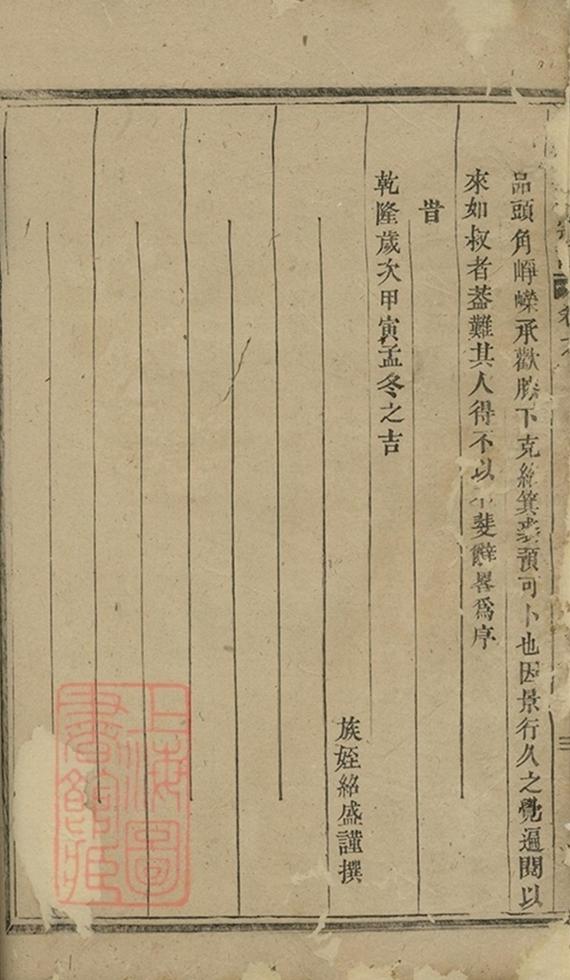 品頭角崢嶸承歡膝下克紹箕裘預可卜也因景行久之覺遍閱以
來如叔者葢難其人得不以不斐辭畧爲序
旹
乾隆歲次甲寅孟冬之吉
族姪紹盛謹撰
上海圖
書館藏